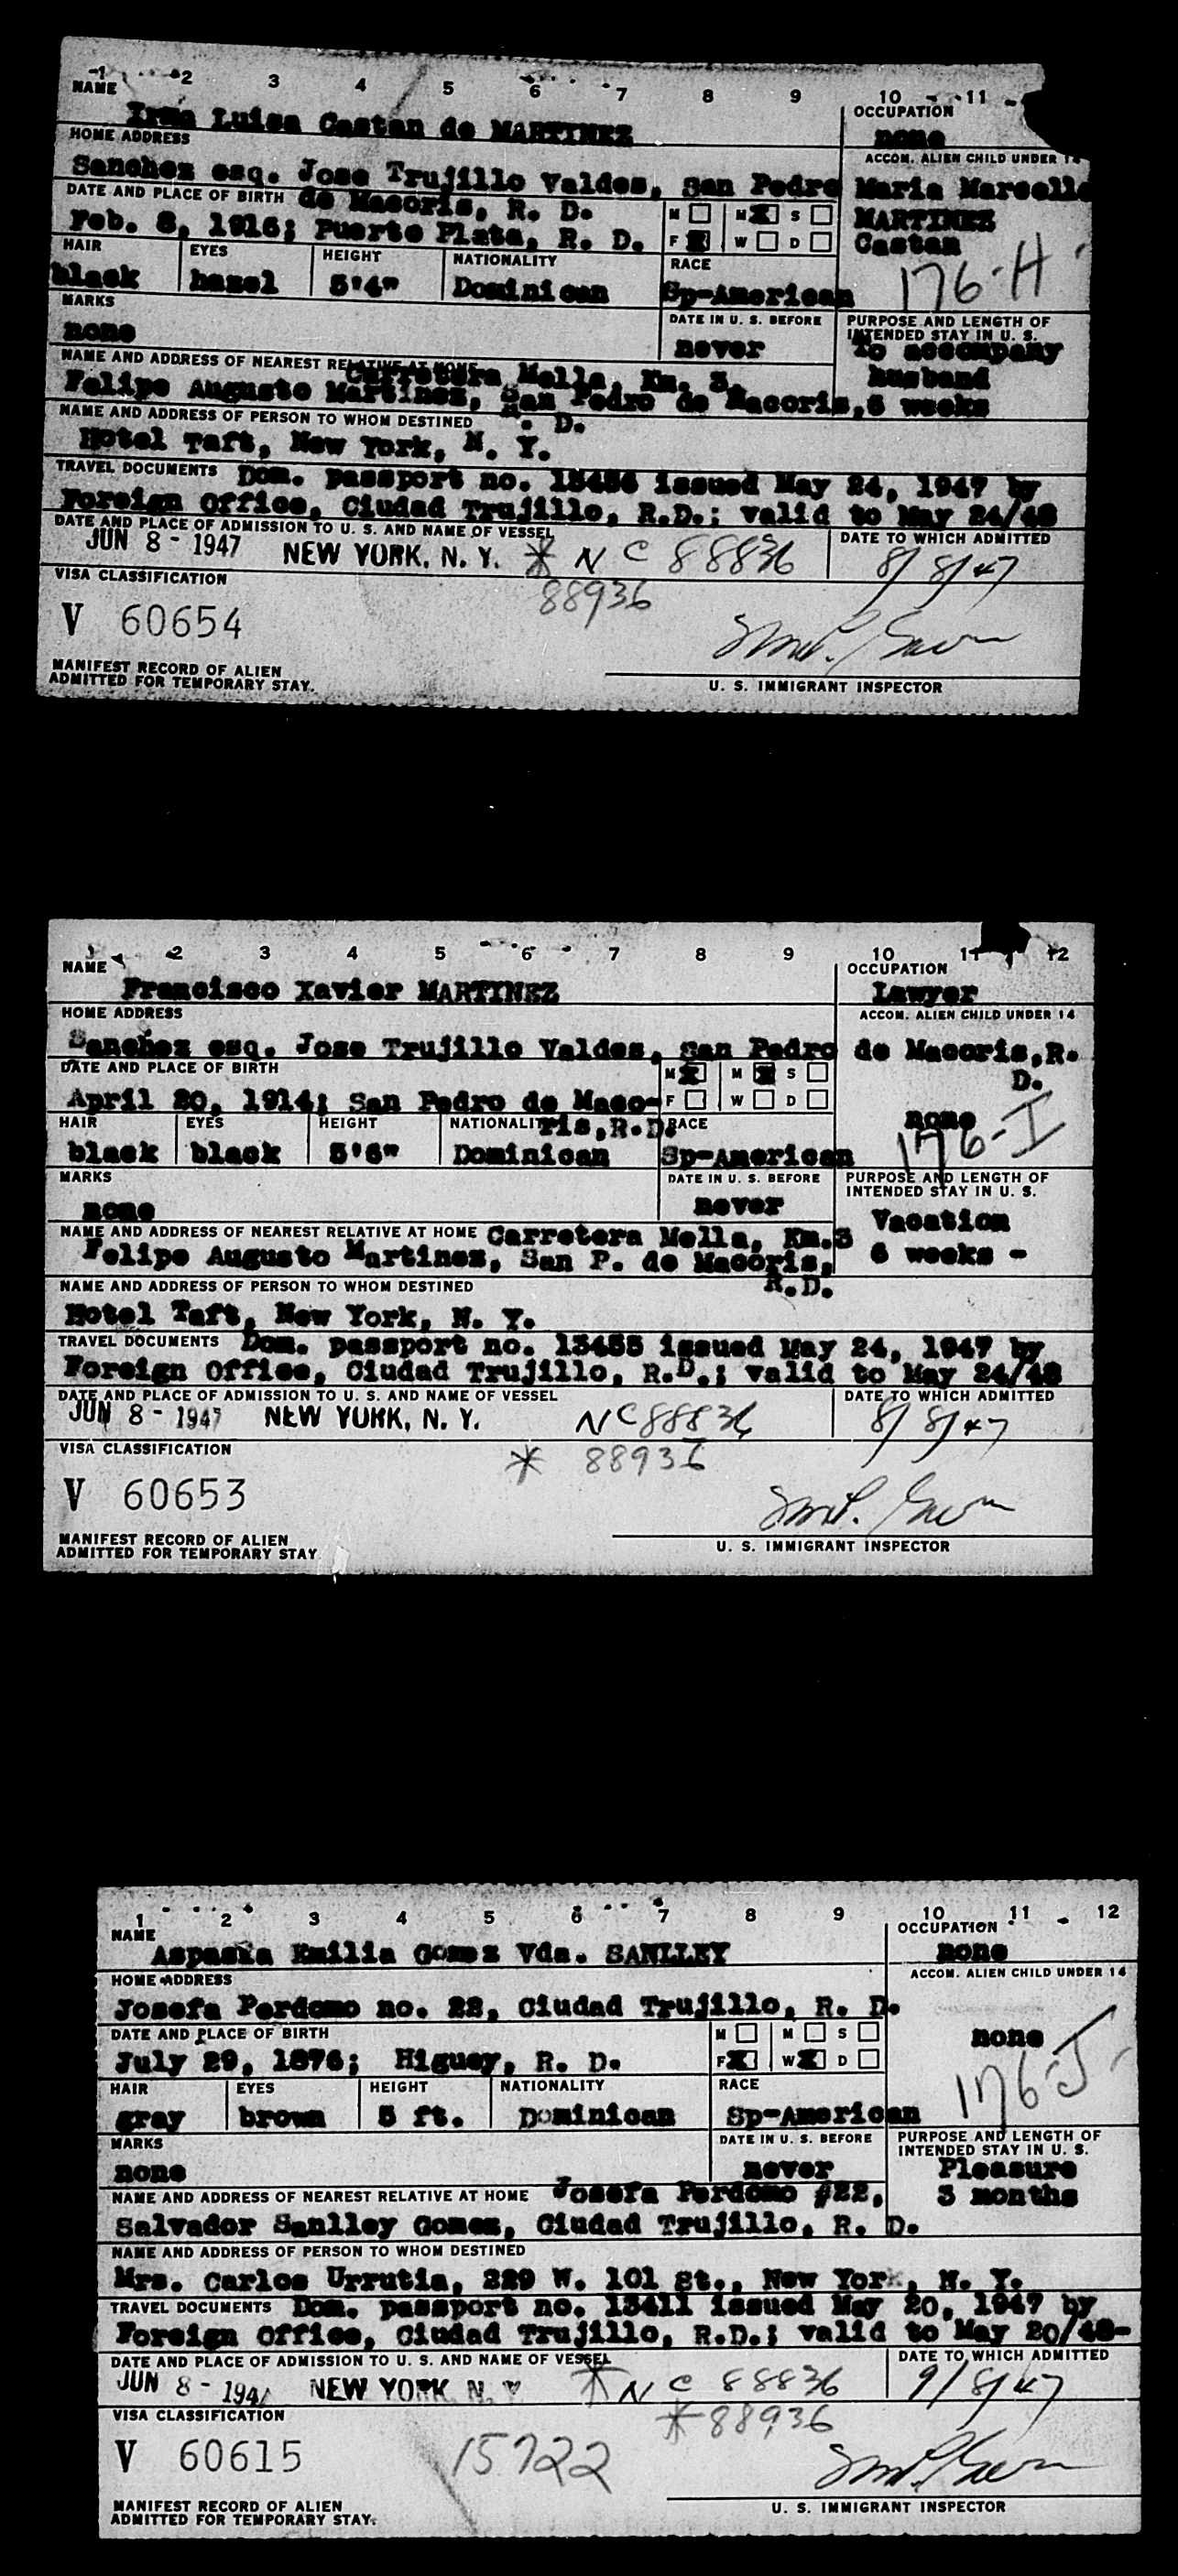 1 2 3 4 5 6 7 8 9 10 11
NAME OCCUPATION
Irma Luisa Castan de MARTINEZ none
HOME ADDRESS ACCOM. ALIEN CHILD UNDER 14
Sanchez esq. Jose Trujillo Valdes, San Pedro Maria Marcelle
DATE AND PLACE OF BIRTH de Macoris, R. D. M M S MARTINEZ
Feb. 8, 1916; Puerto Plata, R. D. F W D Castan
HAIR EYES HEIGHT NATIONALITY RACE 176-H
black hazel 5'4" Dominican Sp-American
MARKS DATE IN U. S. BEFORE PURPOSE AND LENGTH OF
INTENDED STAY IN U. S.
none never To accompany
NAME AND ADDRESS OF NEAREST RELATIVE AT HOME Carretera Mella, Km. 3, husband
Felipe Augusto Martinez, San Pedro de Macoris, 6 weeks
NAME AND ADDRESS OF PERSON TO WHOM DESTINED R. D.
Hotel Taft, New York, N. Y.
TRAVEL DOCUMENTS Dom. passport no. 13454 issued May 24, 1947 by
Foreign Office, Ciudad Trujillo, R.D.; valid to May 24/48
DATE AND PLACE OF ADMISSION TO U. S. AND NAME OF VESSEL DATE TO WHICH ADMITTED
JUN 8 - 1947 NEW YORK, N. Y. * N C 88836 8/8/47
VISA CLASSIFICATION 88936
V 60654
MANIFEST RECORD OF ALIEN
ADMITTED FOR TEMPORARY STAY. U. S. IMMIGRANT INSPECTOR
1 2 3 4 5 6 7 8 9 10 11 12
NAME OCCUPATION
Francisco Xavier MARTINEZ Lawyer
HOME ADDRESS ACCOM. ALIEN CHILD UNDER 14
Sanchez esq. Jose Trujillo Valdes, San Pedro de Macoris, R.
DATE AND PLACE OF BIRTH M M S D.
April 20, 1914; San Pedro de Maco- F W D none
HAIR EYES HEIGHT NATIONALITY ris, R.D. RACE 176-I
black black 5'6" Dominican Sp-American
MARKS DATE IN U. S. BEFORE PURPOSE AND LENGTH OF
INTENDED STAY IN U. S.
none never Vacation
NAME AND ADDRESS OF NEAREST RELATIVE AT HOME Carretera Mella, Km.3
Felipe Augusto Martinez, San P. de Macoris, 6 weeks -
NAME AND ADDRESS OF PERSON TO WHOM DESTINED R.D.
Hotel Taft, New York, N. Y.
TRAVEL DOCUMENTS Dom. passport no. 13455 issued May 24, 1947 by
Foreign Office, Ciudad Trujillo, R.D.; valid to May 24/48
DATE AND PLACE OF ADMISSION TO U. S. AND NAME OF VESSEL DATE TO WHICH ADMITTED
JUN 8 - 1947 NEW YORK, N. Y. NC 88836 8/8/47
VISA CLASSIFICATION * 88936
V 60653
MANIFEST RECORD OF ALIEN
ADMITTED FOR TEMPORARY STAY U. S. IMMIGRANT INSPECTOR
1 2 3 4 5 6 7 8 9 10 11 12
NAME OCCUPATION
Aspasia Emilia Gomez Vda. SANLLEY none
HOME ADDRESS ACCOM. ALIEN CHILD UNDER 14
Josefa Perdomo no. 22, Ciudad Trujillo, R. D.
DATE AND PLACE OF BIRTH M M S none
July 29, 1876; Higuey, R. D. F W D
HAIR EYES HEIGHT NATIONALITY RACE 176-J
gray brown 5 ft. Dominican Sp-American
MARKS DATE IN U. S. BEFORE PURPOSE AND LENGTH OF
INTENDED STAY IN U. S.
none never Pleasure
NAME AND ADDRESS OF NEAREST RELATIVE AT HOME Josefa Perdomo #22, 3 months
Salvador Sanlley Gomez, Ciudad Trujillo, R. D.
NAME AND ADDRESS OF PERSON TO WHOM DESTINED
Mrs. Carlos Urrutia, 229 W. 101 St., New York, N. Y.
TRAVEL DOCUMENTS Dom. passport no. 13411 issued May 20, 1947 by
Foreign Office, Ciudad Trujillo, R.D.; valid to May 20/48-
DATE AND PLACE OF ADMISSION TO U. S. AND NAME OF VESSEL DATE TO WHICH ADMITTED
JUN 8 - 194 NEW YORK N. Y. * N C 88836 9/8/47
VISA CLASSIFICATION * 88936
V 60615 15722
MANIFEST RECORD OF ALIEN
ADMITTED FOR TEMPORARY STAY. U. S. IMMIGRANT INSPECTOR